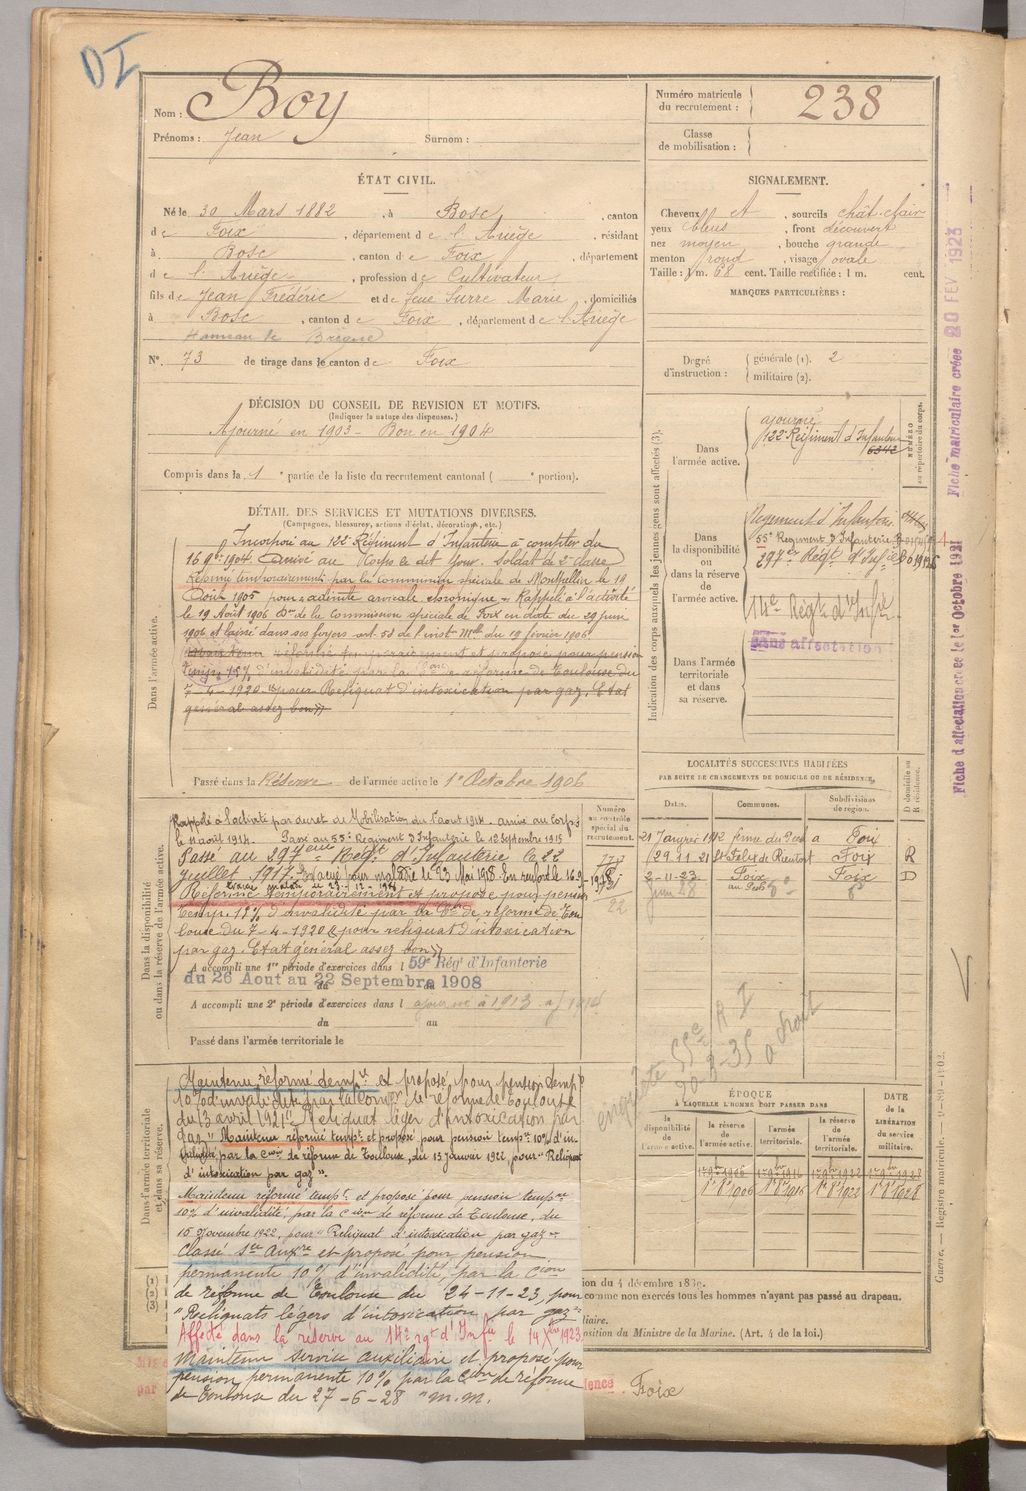 DI
Nom : Boy
Prénoms : Jean Surnom :
Numéro matricule du recrutement : 238
Classe de mobilisation :
ÉTAT CIVIL.
Né le 30 Mars 1882, à Bosc, canton
de Foix, département de l'Ariège, résidant
à Bosc, canton de Foix, département
de l'Ariège, profession de Cultivateur
fils de Jean Frédéric et de feue Surre Marie, domiciliés
à Bosc, canton de Foix, département de l'Ariège
Hameau de
N°. 73 de tirage dans le canton de Foix
SIGNALEMENT.
Cheveux et, sourcils chât. clair
yeux bleus, front découvert
nez moyen, bouche grande
menton rond, visage ovale
Taille : 1m. 68 cent. Taille rectifiée : 1 m. cent.
MARQUES PARTICULIÈRES :
Degré d'instruction : générale (1). 2
militaire (2).
DÉCISION DU CONSEIL DE REVISION ET MOTIFS.
(Indiquer la nature des dispenses.)
Ajourné en 1903 - Bon en 1904
Compris dans la 1e partie de la liste du recrutement cantonal ( e portion).
DÉTAIL DES SERVICES ET MUTATIONS DIVERSES.
(Campagnes, blessures, actions d'éclat, décorations, etc.)
Dans l'armée active.
Incorporé au 122e Régiment d'Infanterie à compter du
16 9bre 1904. Arrivé au Corps le dit jour. Soldat de 2e classe
Réformé temporairement par la commission spéciale de Montpellier le 19
Août 1905 pour chronique - Rappelé à l'activité
le 19 Août 1906 Don de la Commission spéciale de Foix en date du 29 juin
1906 et laissé dans ses foyers art. 53 de l'inst. Mlle du 19 février 1906
réformé temporairement et proposé pour pension
temp. 15% d'invalidité par la de réforme de Toulouse du
7-4-1920 "pour Reliquat d'intoxication par gaz. État
général assez bon"
Passé dans la Réserve de l'armée active le 1er Octobre 1906
Indication des corps auxquels les jeunes gens sont affectés (3).
NUMÉRO au répertoire du corps.
Dans l'armée active.
ajourné
122e Régiment d'Infanterie
6342
Dans la disponibilité ou dans la réserve de l'armée active.
Régiment d'Infanterie
55e Régiment d'Infanterie
297e Régt d'Infie
14e Régt d'Infie
sans affectation
Dans l'armée territoriale et dans sa réserve.
Fiche matriculaire créée 20 FEV 1923
Fiche d'affectation créée le 1er Octobre 1921
LOCALITÉS SUCCESSIVES HABITÉES
PAR SUITE DE CHANGEMENTS DE DOMICILE OU DE RÉSIDENCE.
Dates. Communes. Subdivisions de région. D domicile ou R résidence.
21 Janvier 1912 a Foix
29.11.21 St Felix de Rieutort Foix R
2-11-23. Foix Foix D
Juin 28
Dans la disponibilité ou dans la réserve de l'armée active.
Numéro au contrôle spécial du recrutement.
Rappelé à l'activité par décret de Mobilisation du 1er août 1914. arrivé au Corps
le 11 août 1914. Passé au 55e Régiment d'Infanterie le 12 Septembre 1915
Passé au 297eme Régt d'Infanterie le 22
juillet 1917. Evacué pour maladie le 23 Mai 1918. En renfort le 16-9-1918
Réformé temporairement et proposé pour pension
temp. 15% d'invalidité par la Con de réforme de Tou-
louse du 7-4-1920 "pour reliquat d'intoxication
par gaz. Etat général assez bon"
A accompli une 1re période d'exercices dans l 59e Régt d'Infanterie
du 26 Aout au 22 Septembre 1908
A accompli une 2e période d'exercices dans l ajourné à 1913. aj 1914
du au
Passé dans l'armée territoriale le
enquête
20-3-35
Dans l'armée territoriale et dans sa réserve.
Maintenu réformé tempre et proposé pour pension tempre
10% d'invalidité par la Comon de réforme de Toulouse
du 13 avril 1921 "Reliquat léger d'intoxication par
gaz" Maintenu réformé tempre et proposé pour pension tempre 10% d'in-
validité, par la Cion de réforme de Toulouse, du 13 janvier 1922, pour "Reliquat
d'intoxication par gaz".
Maintenu réformé tempre et proposé pour pension tempre
10% d'invalidité, par la Cion de réforme de Toulouse, du
15 Novembre 1922, pour "Reliquat d'intoxication par gaz"
Classé Sce Auxre et proposé pour pension
permanente 10% d'invalidité, par la Cion
de réforme de Toulouse du 24-11-23, pour
"Reliquats légers d'intoxication par gaz"
Affecté dans la réserve au 14e rgt d'Infie le 14 Xbre 1923
Maintenu service auxiliaire et proposé pour
pension permanente 10% par la Cion de réforme
de Toulouse du 27-6-28 "m.m.
ÉPOQUE
A LAQUELLE L'HOMME DOIT PASSER DANS
la disponibilité de l'armée active. la réserve de l'armée active. l'armée territoriale. la réserve de l'armée territoriale.
DATE de la LIBÉRATION du service militaire.
1er 9bre 1906 1er 9bre 1916 1er 9bre 1922 1er 9bre 1928
1er 8bre 1906 1er 8bre 1916 1er 8bre 1922 1er 8bre 1928
(1)
(2)
(3)
comme non exercés tous les hommes n'ayant pas passé au drapeau.
liaire.
osition du Ministre de la Marine. (Art. 4 de la loi.)
par
dence Foix
Guerre. — Registre matricule.